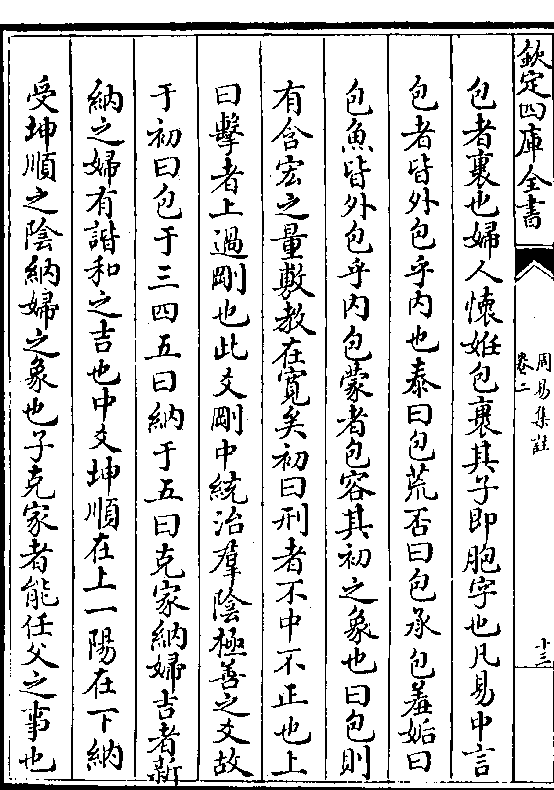 欽定四庫全書
周易集註
卷二
十三
包者裹也婦人懷姙包裹其子即胞字也凡易中言
包者皆外包乎内也泰曰包荒否曰包承包羞姤曰
包魚皆外包乎内包蒙者包容其初之象也曰包則
有含宏之量敷教在寛矣初曰刑者不中不正也上
曰擊者上過剛也此爻剛中統治羣陰極善之爻故
于初曰包于三四五曰納于五曰克家納婦吉者新
納之婦有諧和之吉也中爻坤順在上一陽在下納
受坤順之陰納婦之象也子克家者能任父之事也